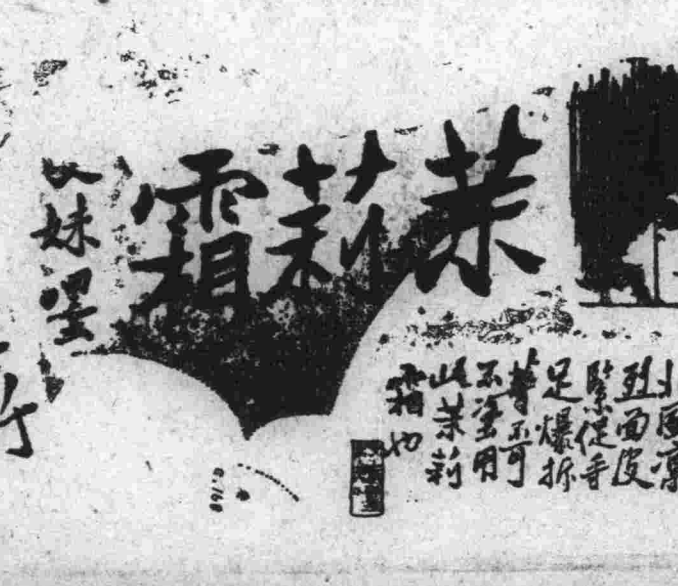 茉莉霜
双妹墨
北風凛
烈面皮
緊促手
足爆拆
等不可
不塗用
此茉莉
霜也